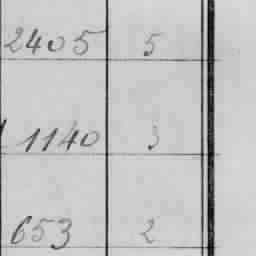 2405 5
1140 3
653 2